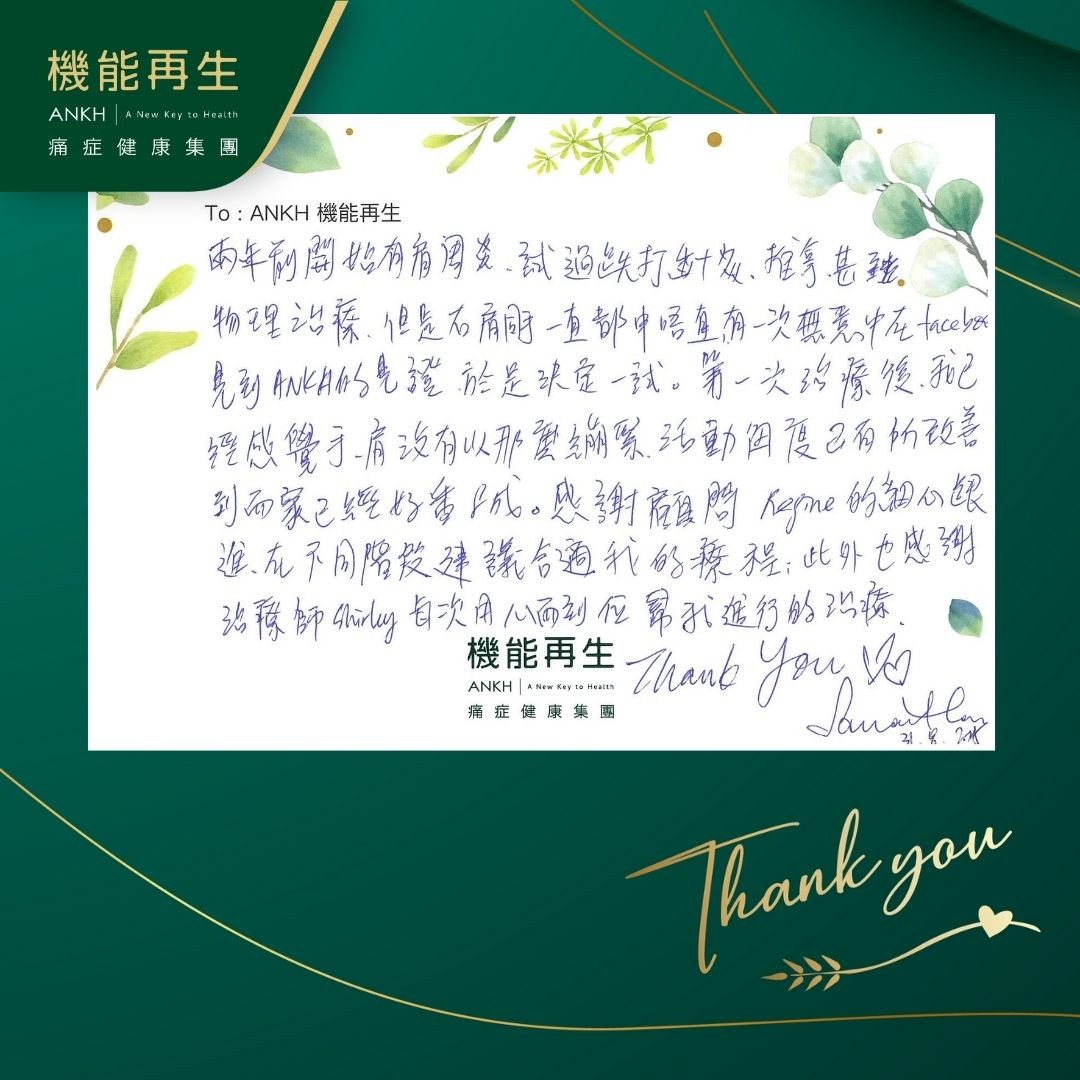 機能再生
ANKH | A New Key to Health
痛症健康集團
To : ANKH 機能再生
兩年前開始有肩周炎、試過跌打針灸、推拿甚至
物理治療、但是右肩膊一直都申唔直、有一次無意中在facebook
見到ANKH的見證、於是決定一試。第一次治療後、我已
經感覺手、肩沒有以那麼繃緊、活動角度已有所改善
到而家已經好番8成。感謝顧問 Regine 的細心跟
進、在不同階段建議合適我的療程；此外也感謝
治療師 Shirley 每次用心而到位幫我進行的治療.
機能再生
ANKH | A New Key to Health
痛症健康集團
Thank You
Thank you